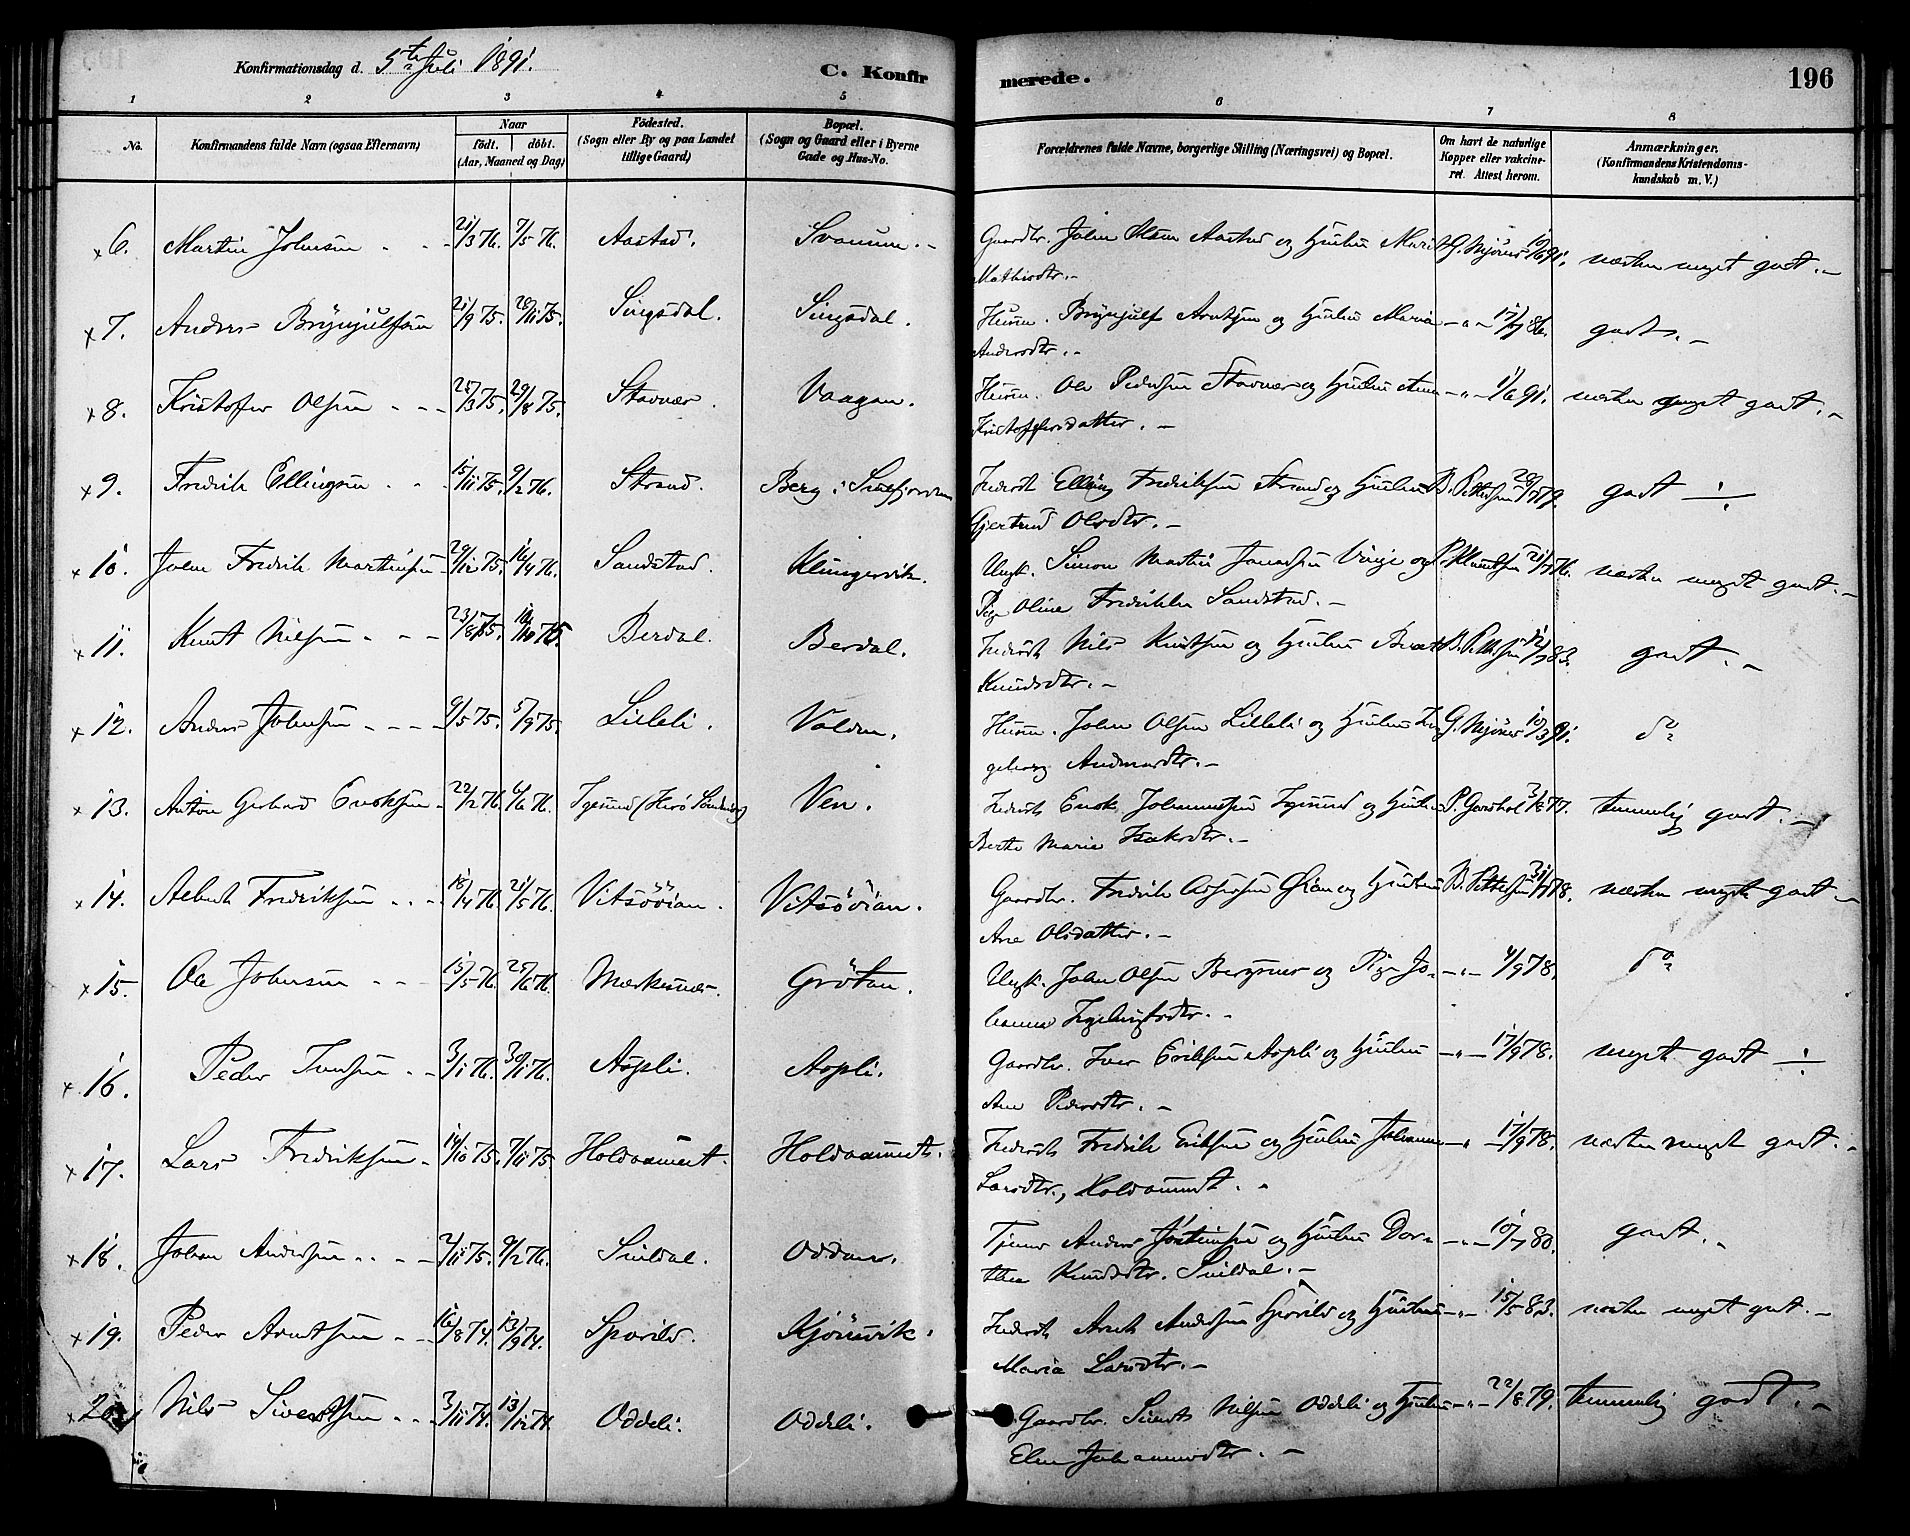 Konfirmationsdag d. 5te Juli 1891.
C. Konfirmerede.
196
1 2 3 4 5 6 7 8
No.
Konfirmandens fulde Navn (ogsaa Efternavn)
Naar
födt. döbt.
(Aar, Maaned og Dag)
Födested.
(Sogn eller By og paa Landet
tillige Gaard)
Bopæl.
(Sogn og Gaard eller i Byerne
Gade og Hus-No.
Forældrenes fulde Navne, borgerlige Stilling (Næringsvei) og Bopæl.
Om havt de naturlige
Kopper eller vakcine-
ret. Attest herom.
Anmærkninger.
(Konfirmandens Kristendoms-
kundskab m. V.)
x 6. Martin Johnsen 21/3 76. 7/5 76. Aastad. Svanem. Gaardbr. John Olsen Aastad og Hustru Marit G. Mjönes 10/6 91. næsten meget godt.
Mathisdtr.
x 7. Anders Brynjulfsen 21/9 75. 28/11 75. Singsdal. Singsdal. Husm. Brynjulf Arntsen og Hustru Maria 17/7 86. godt.
Andersdtr.
x 8. Kristoffer Olsen 25/3 75. 29/8 75. Stavnær. Vaagan. Husm. Ole Pedersen Stavnær og Hustru Ane 1/6 91. næsten meget godt.
Kristoffersdatter.
x 9. Fredrik Ellingsen 15/11 75. 9/2 76. Strand. Berg i Snefjorden Inderst Elling Fredriksen Strand og Hustru B. Pettersen 28/7 79. godt
Gjertrud Olsdtr.
x 10. John Fredrik Martinsen 29/12 75. 16/4 76. Sandstad. Klungervik. Ungk. Simon Martin Jonassen Vinje og P. Knutsen 21/7 76. næsten meget godt.
Pige Oline Fredrikke Sandstad.
x 11. Knut Nilsen 23/8 75. 10/10 75. Berdal. Berdal. Inderst Nils Knutsen og Hustru Berit B. Pettersen 12/7 83. godt.
Knudsdtr.
x 12. Anders Johnsen 9/5 75. 5/9 75. Lilleli. Valden. Husm. John Olsen Lilleli og Hustru In- G. Mjönes 10/3 91. do
geborg Andersdtr.
x 13. Anton Gerhard Enoksen 22/2 76. 4/6 76. Igesund (Herö Ven. Inderst Enok Johannesen Igesund og Hustru P. Gaashol 3/8 77. temmelig godt.
Berte Marie Isaksdtr.
x 14. Albert Fredriksen 18/4 76. 21/5 76. Vitsööian. Vitsööian. Gaardbr. Fredrik Assersen Öian og Hustru B. Pettersen 31/7 78. næsten meget godt
Ane Olsdatter.
x 15. Ole Johnsen 15/5 76. 25/6 76. Mærkesnes. Grötan. Ungk. John Olsen Bergsnes og Pige Jo- 4/9 78. do
hanna Ingebrigtsdtr.
x 16. Peder Iversen 3/1 76. 30/1 76. Aspli. Aspli. Gaardbr. Iver Eriksen Aspli og Hustru 17/9 78. meget godt
Ane Pedersdtr.
x 17. Lars Fredriksen 14/10 75. 7/11 75 Holdaameet. Holdaameet. Inderst Fredrik Eriksen og Hustru Johanna 17/9 78. næsten meget godt.
Larsdtr., Holdaameet.
x 18. Johan Andersen 2/11 75. 9/2 76. Snildal. Oddan. Tjener Anders Josteinsen og Hustru Dor- 10/7 80. godt.
thea Knudsdtr. Snildal.
x 19. Peder Arntsen 16/8 74. 13/9 74. Sporild. Kjönsvik. Inderst Arnt Andersen Sporild og Hustru 15/5 83. næsten meget godt.
Maria Larsdtr.
x 20. Nils Sivertsen 3/11 74. 13/12 74. Oddeli. Oddeli. Gaardbr. Sivert Nilsen Oddeli og Hustru 22/8 79. temmelig godt.
Elen Johannesdtr.